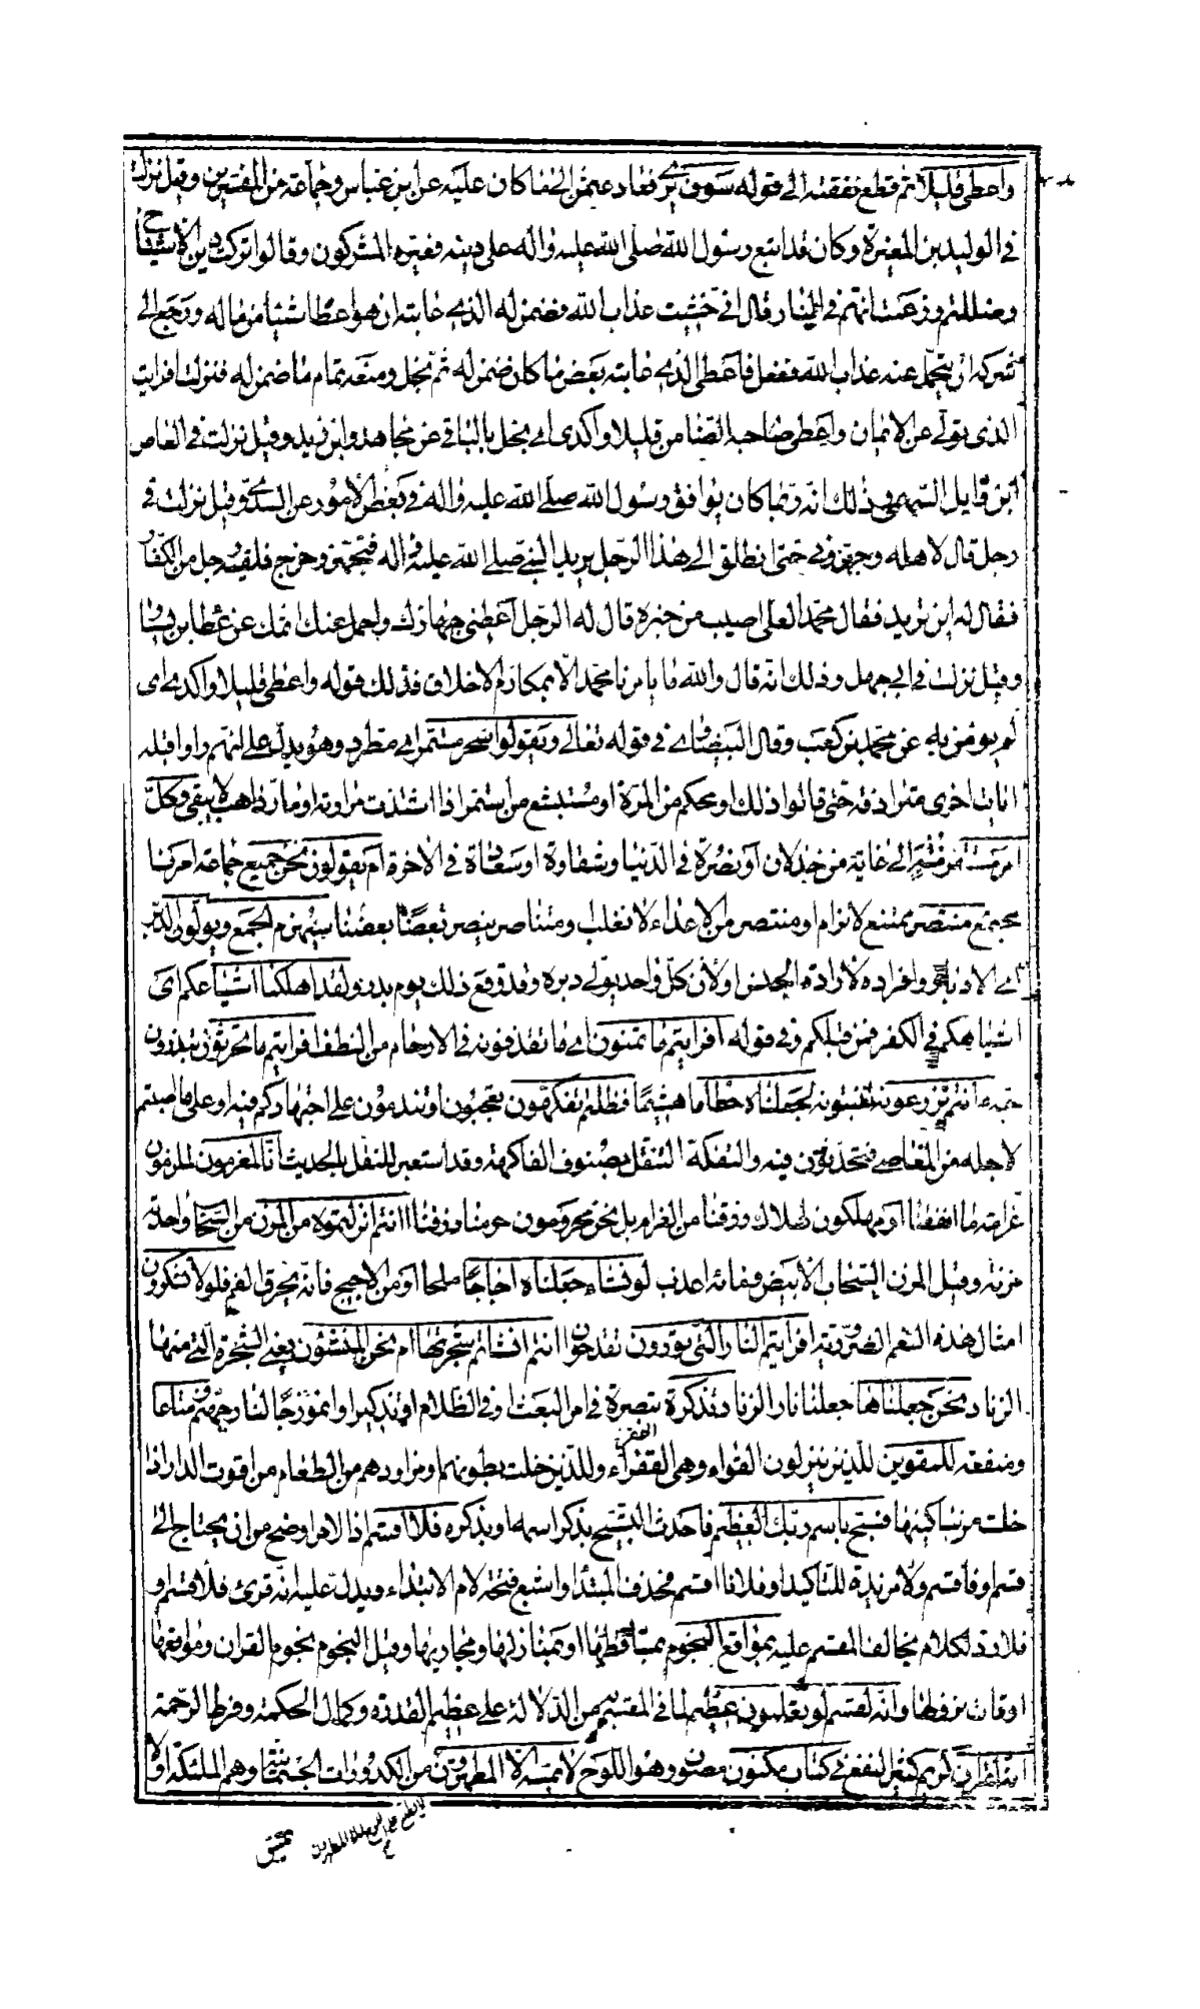 واعطى قليلا ثم قطع نفقته الى قوله سوف يرى فعاد عثمن الى ما كان عليه عن ابن عباس وجماعة من المفسرين وقيل نزلت
في الوليد بن المغيرة وكان قد اتبع رسول الله صلى الله عليه واله على دينه فعيره المشركون وقالوا تركت دين الاشياخ
وضللتهم وزعمت انهم في النار قال اني خشيت عذاب الله فضمن له الذي عاتبه ان هو اعطاه شيئا من ماله ورجع الى
شركه ان يتحمل عنه عذاب الله ففعل فاعطى الذي عاتبه بعض ما كان ضمن له ثم بخل ومنعه تمام ما ضمن له فنزلت افرايت
الذي تولى عن الايمان واعطى صاحبه الضامن قليلا واكدى اي بخل بالباقي عن مجاهد وابن زيد وقيل نزلت في العاص
ابن وايل السهمي وذلك انه ربما كان يوافق رسول الله صلى الله عليه واله في بعض الامور عن السدي وقيل نزلت في
رجل قال لاهله وجهزوني حتى انطلق الى هذا الرجل يريد النبي صلى الله عليه واله فتجهز وخرج فلقيه رجل من الكفار
فقال له اين تريد فقال محمدا لعلى اصيب من خيره قال له الرجل اعطني جهازك واحمل عنك اثمك عن عطا بن يسار
وقيل نزلت في ابي جهل وذلك انه قال والله ما يامرنا محمد الا بمكارم الاخلاق فذلك قوله واعطى قليلا واكدى اي
لم يؤمن به عن محمد بن كعب وقال البيضاوي في قوله تعالى ويقولوا سحر مستمر اي مطرد وهو يدل على انهم راوا قبله
ايات اخرى مترادفة حتى قالوا ذلك او محكم من المرة او مستبشع من استمر اذا اشتدت مرارته او مار ذاهب لا يبقى وكل
امر مستقر منته الى غاية من خذلان او نصرة في الدنيا وشقاوة او سعادة في الاخرة ام يقولون نحن جميع جماعة امرنا
مجتمع منتصر ممتنع لا نرام او منتصر من الاعداء لا نغلب ومتناصر ينصر بعضنا بعضا سيهزم الجمع ويولون الدبر
اي الادبار وافراده لارادة الجنس او لان كل واحد يولى دبره وقد وقع ذلك يوم بدر ولقد اهلكنا اشياعكم اى
اشباهكم في الكفر ممن قبلكم وفي قوله افرايتم ما تمنون اي ما تقذفونه في الارحام من النطف افرايتم ما تحرثون تبذرون
حبه ءانتم تزرعونه تنبتونه لجعلناه حطاما هشيما فظلتم تفكهون تعجبون او تندمون على اجتهادكم فيه او على ما اصبتم
لاجله من المعاصي فتتحدثون فيه والتفكه التنقل بصنوف الفاكهة وقد استعير للتنقل بالحديث انا لمغرمون لملزمون
غرامة ما انفقنا او مهلكون لهلاك رزقنا من الغرام بل نحن محرومون حرمنا رزقنا ءانتم انزلتموه من المزن من السحاب واحدته
مزنة وقيل المزن السحاب الابيض وماؤه اعذب لو نشاء جعلناه اجاجا ملحا او من الاجيج فانه يحرق الفم فلولا تشكرون
امثال هذه النعم الضرورية افرايتم النار التي تورون تقدحون ءانتم انشاتم شجرتها ام نحن المنشئون يعني الشجرة التي منها
الزناد نحن جعلناها جعلنا نار الزناد تذكرة تبصرة في امر البعث او في الظلام او تذكيرا وانموذجا لنار جهنم ومتاعا
ومنفعة للمقوين للذين ينزلون القواء وهي القفر او للذين خلت بطونهم او مزاودهم من الطعام من اقوت الدار اذا
خلت من ساكنيها فسبح باسم ربك العظيم فاحدث التسبيح بذكر اسمه او بذكره فلا اقسم اذ الامر اوضح من ان يحتاج الى
قسم او فاقسم ولا مزيدة للتاكيد او فلانا اقسم فحذف المبتدا واشبع فتحة لام الابتداء ويدل عليه انه قرئ فلاقسم او
فلا رد لكلام يخالف المقسم عليه بمواقع النجوم بمساقطها او بمنازلها ومجاريها وقيل النجوم نجوم القران ومواقعها
اوقات نزولها وانه لقسم لو تعلمون عظيم لما في المقسم به من الدلالة على عظيم القدرة وكمال الحكمة وفرط الرحمة
انه لقران كريم كثير النفع في كتاب مكنون مصون وهو اللوح لا يمسه الا المطهرون من الكدورات الجسمانية وهم الملئكة او لا